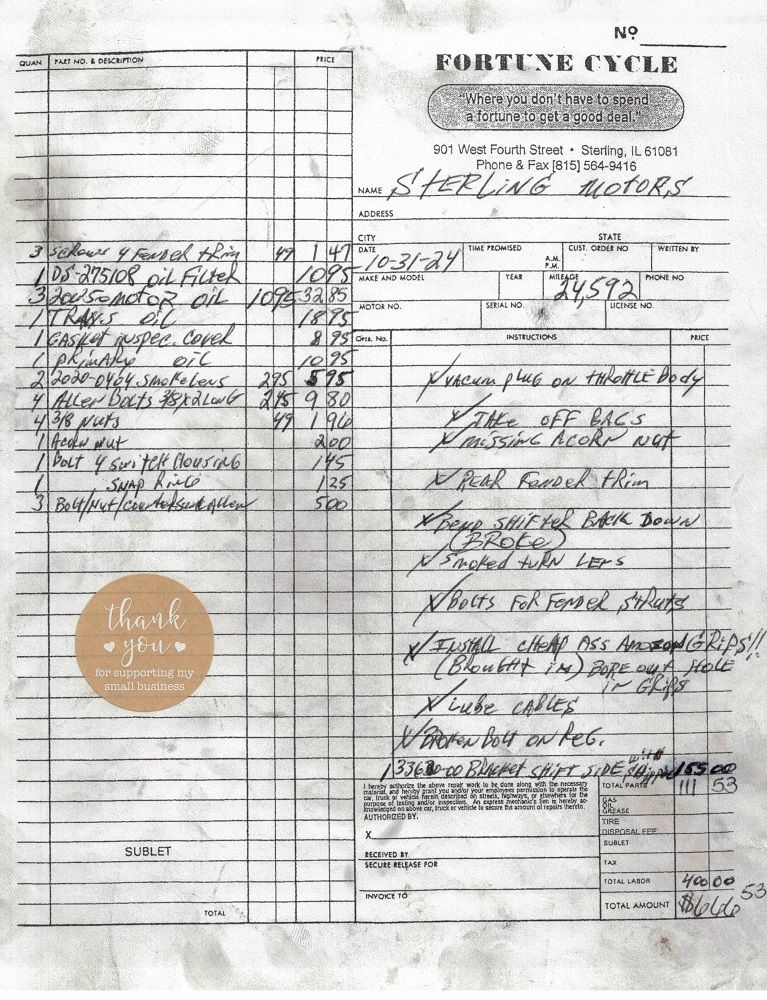 Nº
FORTUNE CYCLE
"Where you don't have to spend
a fortune to get a good deal."
901 West Fourth Street • Sterling, IL 61081
Phone & Fax [815] 564-9416
NAME STERLING MOTORS
ADDRESS
CITY STATE
DATE 10-31-24 TIME PROMISED A.M. P.M. CUST. ORDER NO WRITTEN BY
MAKE AND MODEL YEAR MILEAGE 24,592 PHONE NO
MOTOR NO. SERIAL NO. LICENSE NO.
QUAN PART NO. & DESCRIPTION PRICE
3 Screws 4 Fender trim 49 1 47
1 DS-275108 oil Filter 10 95
3 20W50 motor oil 1095 32 85
1 TRANS oil 18 95
1 GASket inspec. cover 8 95
1 PRIMARY oil 10 95
2 2020-0464 Smoke Lens 295 5 95
4 Allen Bolts 3/8 x 2 Long 245 9 80
4 3/8 Nuts 49 1 96
1 Acorn nut 2 00
1 Bolt 4 Switch Housing 1 45
1 SNAP Ring 1 25
3 Bolt/Nut/Countersunk Allen 5 00
thank
you
for supporting my
small business
SUBLET
TOTAL
Oper. No. INSTRUCTIONS PRICE
X VACUM pLUG ON THROTTLE BODY
X TAKE OFF BAGS
X MISSING ACORN NUT
X REAR FENDER tRIM
X BEND SHIFTER BACK DOWN
(BROKE)
X Smoked tURN LENS
X BOLTS FOR FENDER STRUTS
X INSTALL CHEAP ASS AMAZON GRIPS!!
(BROUGHT IN) BORE OUT HOLE
IN GRIPS
X Lube CABLES
X BROKEN Bolt ON REG.
1 33630-00 BRACKET SHIFT SIDE with Shipping 155 00
I hereby authorize the above repair work to be done along with the necessary
material, and hereby grant you and/or your employees permission to operate the
car, truck or vehicle herein described on streets, highways, or elsewhere for the
purpose of testing and/or inspection. An express mechanic's lien is hereby ac-
knowledged on above car, truck or vehicle to secure the amount of repairs thereto.
AUTHORIZED BY.
X
RECEIVED BY
SECURE RELEASE FOR
INVOICE TO
TOTAL PARTS 111 53
GAS
OIL
GREASE
TIRE
DISPOSAL FEE
SUBLET
TAX
TOTAL LABOR 400 00
TOTAL AMOUNT $666 53